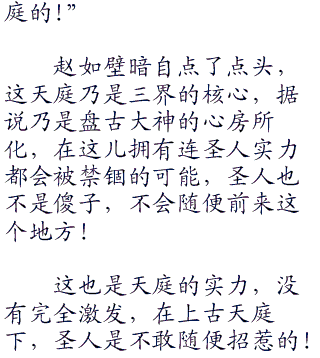 庭的！”
赵如壁暗自点了点头，
这天庭乃是三界的核心，据
说乃是盘古大神的心房所
化，在这儿拥有连圣人实力
都会被禁锢的可能，圣人也
不是傻子，不会随便前来这
个地方！
这也是天庭的实力，没
有完全激发，在上古天庭
下，圣人是不敢随便招惹的！